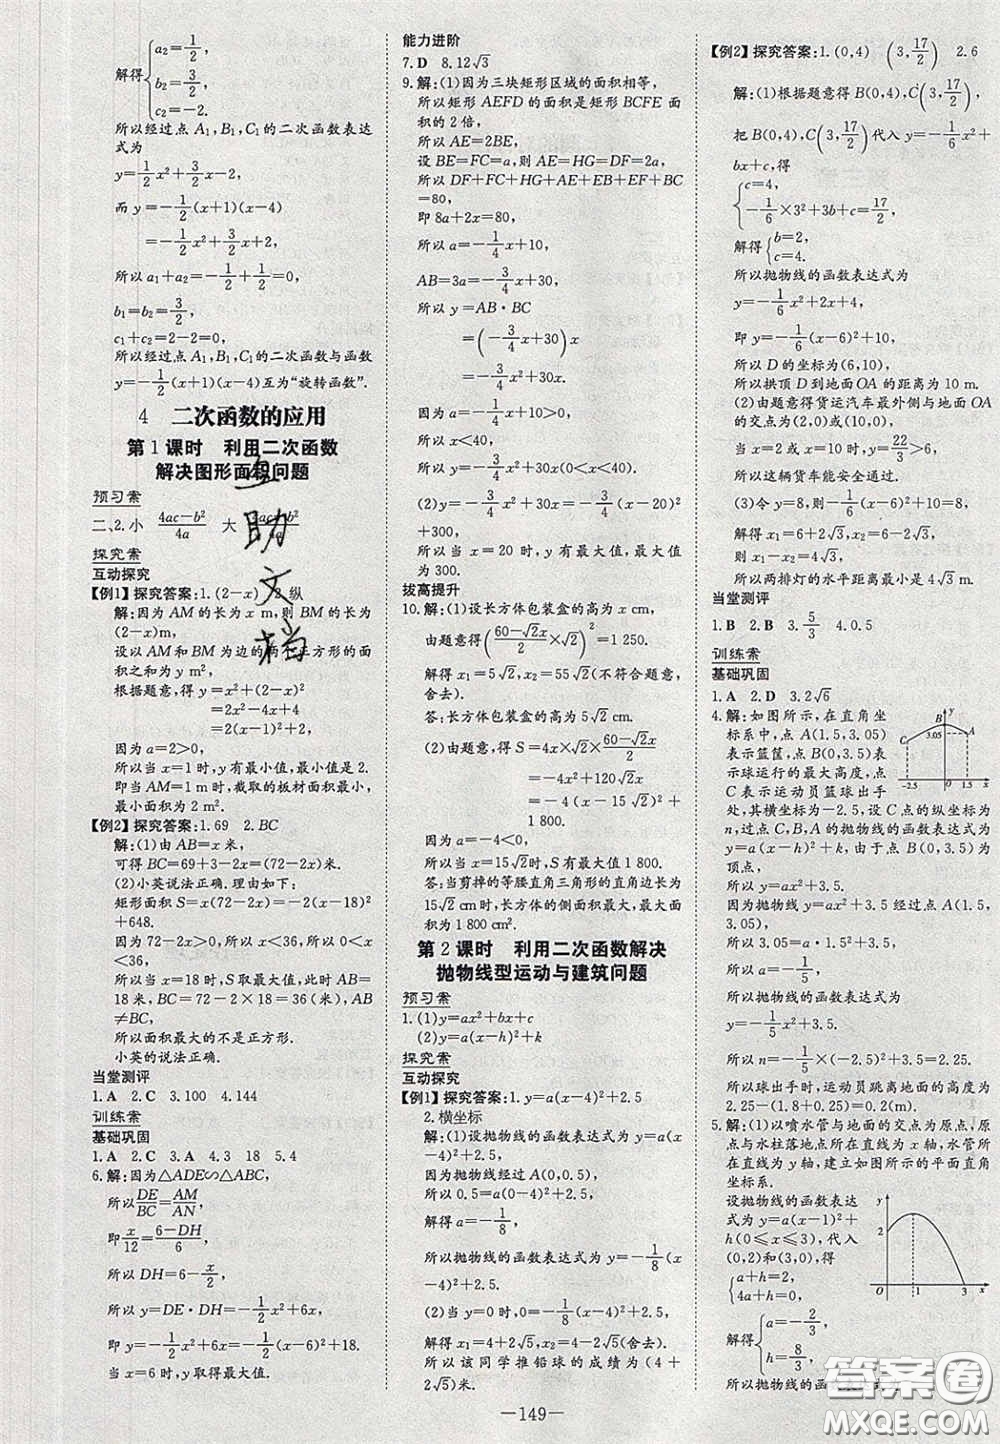 解得{a₂=-1/2,
b₂=3/2,
c₂=-2.
所以经过点 A₁,B₁,C₁的二次函数表达
式为
y=1/2x²+3/2x-2,
而 y=-1/2(x+1)(x-4)
=-1/2x²+3/2x+2,
所以 a₁+a₂=-1/2+1/2=0,
b₁=b₂=3/2,
c₁+c₂=2-2=0,
所以经过点 A₁,B₁,C₁的二次函数与函数
y=-1/2(x+1)(x-4)互为“旋转函数”.
4 二次函数的应用
第1课时 利用二次函数
解决图形面积问题
预习案
二、2.小 (4ac-b²)/4a 大
探究案
互动探究
【例1】探究答案:1.(2-x) 2.纵
解:因为 AM 的长为 x m,则 BM 的长为
(2-x)m,
设以 AM 和 BM 为边的两个正方形的面
积之和为 y m²,
根据题意,得 y=x²+(2-x)²
=2x²-4x+4
=2(x-1)²+2,
因为 a=2>0,
所以当 x=1 时,y 有最小值,最小值是 2.
即当 AM=1 m 时,截取的板材面积最小,
最小面积为 2 m².
【例2】探究答案:1.69 2.BC
解:(1)由 AB=x 米,
可得 BC=69+3-2x=72-2x.
(2)小英说法正确.理由如下:
矩形面积 S=x(72-2x)=-2(x-18)²
+648.
因为 72-2x>0,所以 x<36,所以 0<x<
36,所以当 x=18 时,S取最大值,此时 AB=
18 米,BC=72-2x=72-36=36(米),AB
≠BC,
所以面积最大的不是正方形.
小英的说法正确.
当堂测评
1.A 2.C 3.100 4.144
训练案
基础巩固
1.C 2.C 3.A 4.3 18 5.4
6.解:因为△ADE∽△ABC,
所以DE/BC=AM/AN,
即x/12=(6-DH)/6,
所以 DH=6-x/2,
所以 y=DE·DH=-1/2x²+6x,
即 y=-1/2x²+6x=-1/2(x-6)²+18.
当 x=6时,y取得最大值.
能力进阶
7.D 8.12√3
9.解:(1)因为三块矩形区域的面积相等,
所以矩形 AEFD 的面积是矩形BCFE 面
积的 2 倍,
所以 AE=2BE,
设 BE=FC=a,则 AE=HG=DF=2a,
所以 DF+FC+HG+AE+EB+EF+BC
=80,
即 8a+2x=80,
所以 a=-1/4x+10,
AB=3a=-3/4x+30,
所以 y=AB·BC
=(-3/4x+30)x
=-3/4x²+30x.
因为 a=-1/4x+10>0,
所以 x<40,
所以 y=-3/4x²+30x(0<x<40).
(2)y=-3/4x²+30x=-3/4(x-20)²
+300,
所以当 x=20 时,y 有最大值,最大值
为 300.
拔高提升
10.解:(1)设长方体包装盒的高为 x cm,
由题意得((60-√2x)/2×√2)²=1 250.
解得 x₁=5√2,x₂=55√2(不符合题意,
舍去).
答:长方体包装盒的高为 5√2 cm.
(2)由题意得 S=4x×√2×(60-√2x)/2
=-4x²+120√2x
=-4(x-15√2)²+
1 800.
因为 a=-4<0,
所以当 x=15√2时,S有最大值 1 800.
答:当剪掉的等腰直角三角形的直角边长
为15√2 cm时,长方体的侧面积最大,最大
面积为 1 800 cm².
第2课时 利用二次函数解决
抛物线型运动与建筑问题
预习案
1.(1)y=ax²+bx+c
(2)y=a(x-h)²+k
探究案
互动探究
【例1】探究答案:1.y=a(x-4)²+2.5
2.横坐标
解:(1)设抛物线的函数表达式为 y=
a(x-4)²+2.5,
因为抛物线经过 A(0,0.5),
所以 0.5=a(0-4)²+2.5,
解得 a=-1/8,
所以抛物线的函数表达式为 y=-1/8(x-
4)²+2.5.
(2)当 y=0时,0=-1/8(x-4)²+2.5,
解得 x₁=4+2√5,x₂=4-2√5(舍去).
所以该同学推铅球的成绩为(4+
2√5)米.
【例2】探究答案:1.(0,4) (3,17/2) 2.6
解:(1)根据题意得 B(0,4),C(3,17/2),
把 B(0,4),C(3,17/2)代入 y=-1/6x²+
bx+c,得
{c=4,
-1/6×3²+3b+c=17/2,
解得{b=2,
c=4.
所以抛物线的函数表达式为
y=-1/6x²+2x+4,
即 y=-1/6(x-6)²+10,
所以 D 的坐标为(6,10),
所以拱顶 D 到地面 OA 的距离为 10 m.
(2)由题意得货运汽车最外侧与地面 OA
的交点为(2,0)或(10,0),
当 x=2 或 x=10 时,y=22/3>6,
所以这辆货车能安全通过.
(3)令 y=8,则-1/6(x-6)²+10=8,
解得 x₁=6+2√3,x₂=6-2√3,
则 x₁-x₂=4√3,
所以两排灯的水平距离最小是4√3 m.
当堂测评
1.B 2.B 3.5/3 4.0.5
训练案
基础巩固
1.A 2.D 3.2√6
4.解:如图所示,在直角坐
标系中,点 A(1.5,3.05)
表示篮筐,点 B(0,3.5)表
示球运行的最大高度,点
C 表示运动员篮球出手
处,其横坐标为-2.5,设 C点的纵坐标为
n,过点 C,B,A 的抛物线的函数表达式为
y=a(x-h)²+k,由于点 B(0,3.5)为
顶点,
所以 y=ax²+3.5.
因为抛物线 y=ax²+3.5 经过点 A(1.5,
3.05),
所以 3.05=a·1.5²+3.5,
所以 a=-1/5,
所以抛物线的函数表达式为
y=-1/5x²+3.5.
所以 n=-1/5×(-2.5)²+3.5=2.25.
所以球出手时,运动员跳离地面的高度为
2.25-(1.8+0.25)=0.2(m).
5.解:(1)以喷水管与地面的交点为原点,原
点与水柱落地点所在直线为 x 轴,水管所
在直线为 y 轴,建立如图所示的平面直角
坐标系.
设抛物线的函数表达
式为 y=a(x-1)²+
h(0≤x≤3),代入
(0,2)和(3,0),得
{a+h=2,
4a+h=0,
解得{a=-2/3,
h=8/3,
B y
C 3.05 A
-2.5 O 1.5 x
y
2
O 1 3 x
互助文档
答案圈
MXQE.COM
—149—